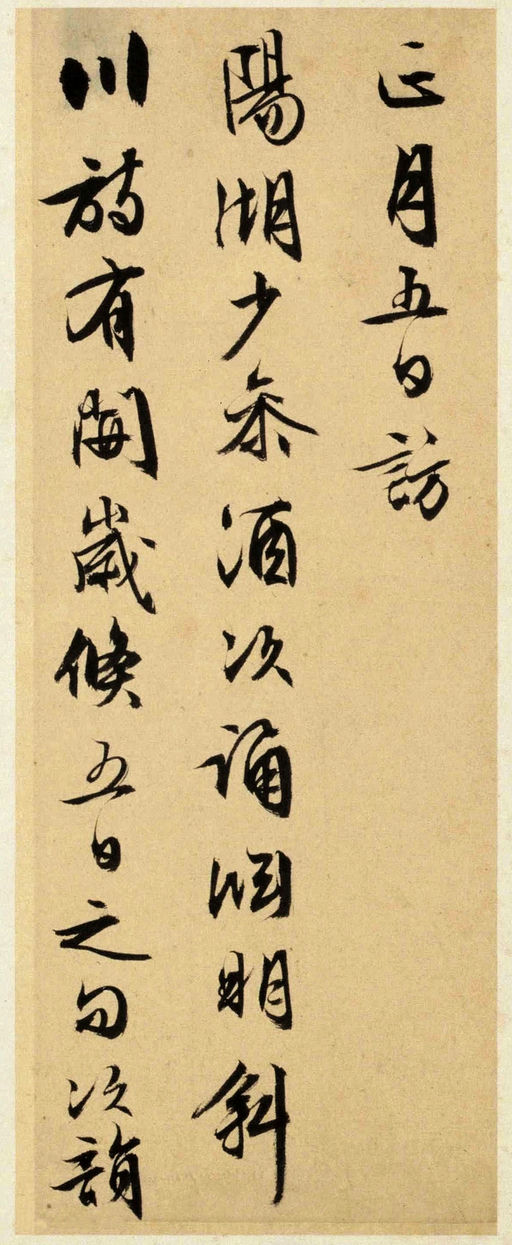 正月五日訪
陽湖少叅酒次誦淵明斜
川詩有開歲倐五日之句次韻